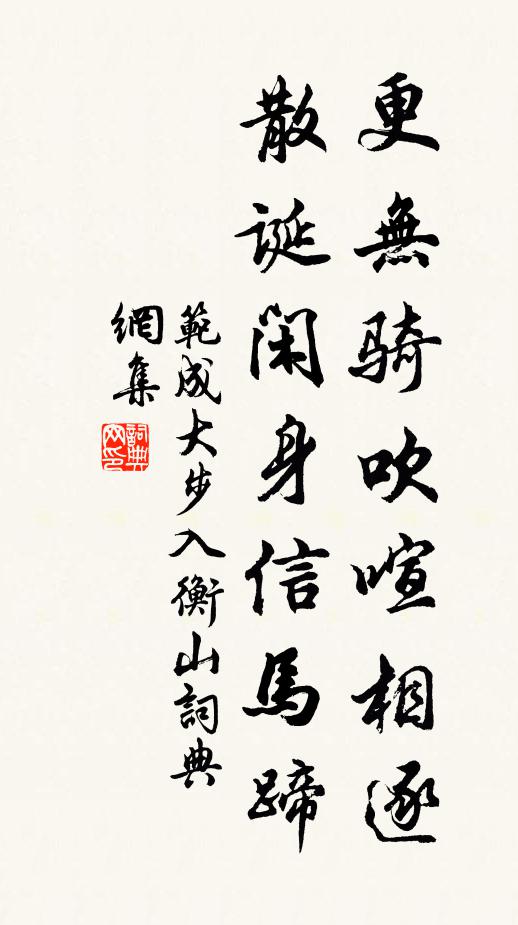 更無騎吹喧相逐
散誕閑身信馬蹄
範成大步入衡山詞典
網集
詞典
网印